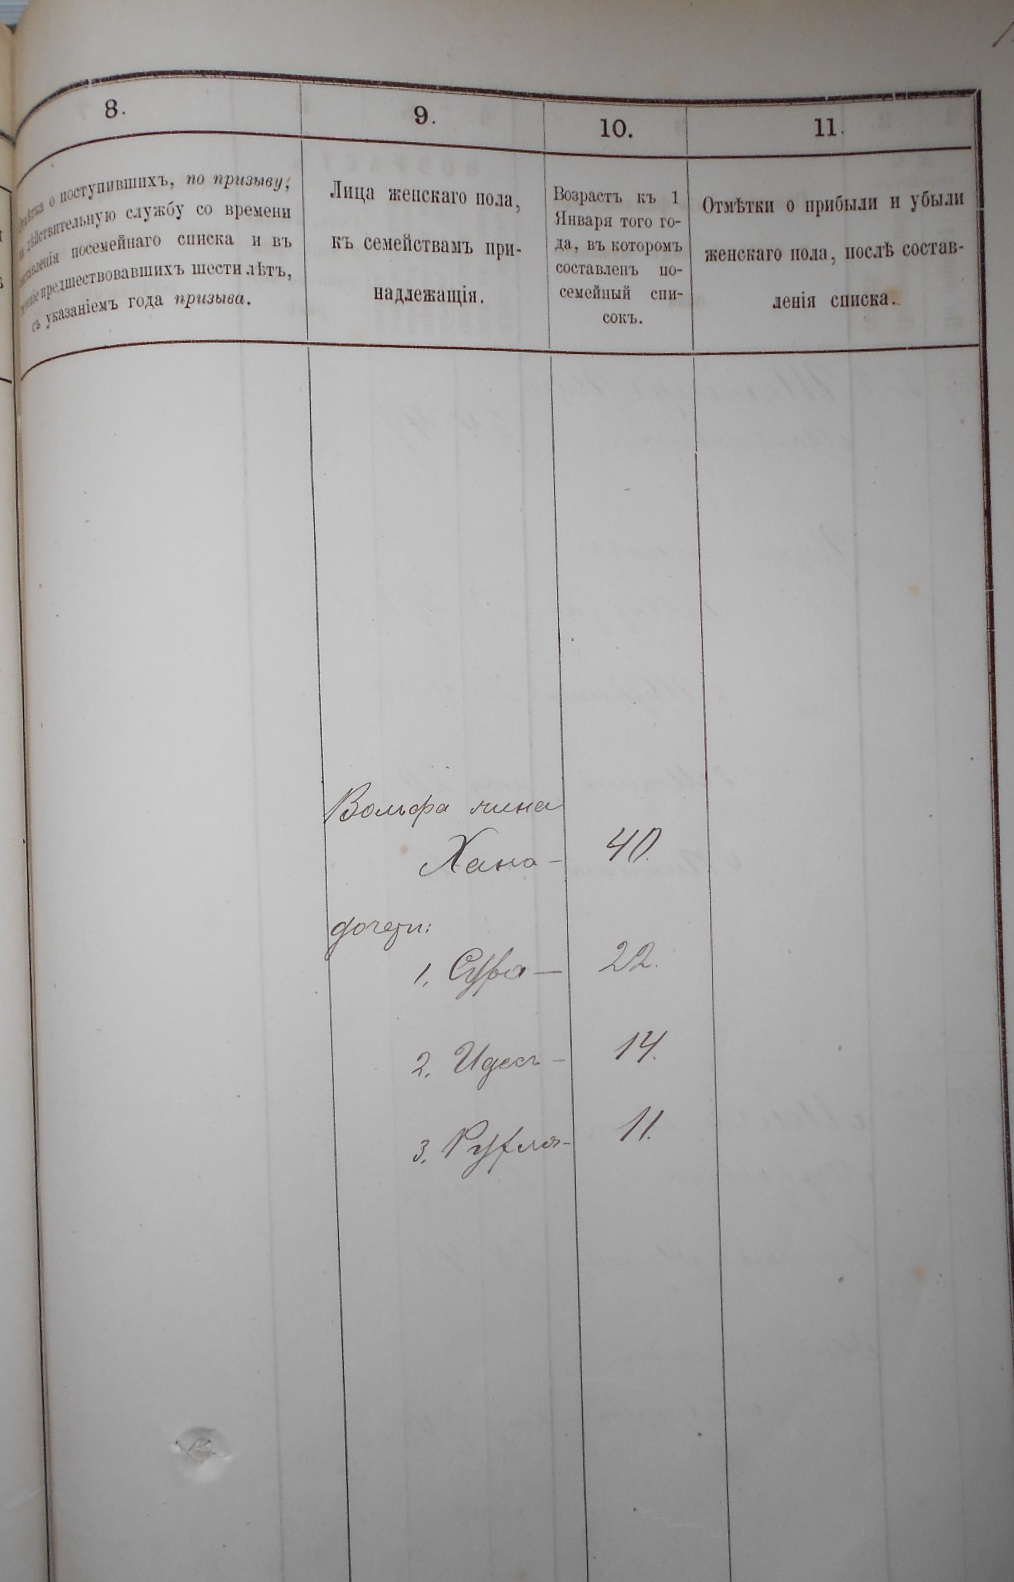 8.
9.
10.
11.
о поступившихъ, по призыву,
дѣйствительную службу со времени
посемейнаго списка и въ
предшествовавшихъ шести лѣтъ,
съ указаніемъ года призыва.
Лица женскаго пола,
къ семействамъ при-
надлежащія.
Возрастъ къ 1
Января того го-
да, въ которомъ
составленъ по-
семейный спи-
сокъ.
Отмѣтки о прибыли и убыли
женскаго пола, послѣ состав-
ленія списка.
Вольфа жена
Хана - 40.
дочери:
1. Сура — 22.
2. Идесъ - 14.
3. Рухля - 11.